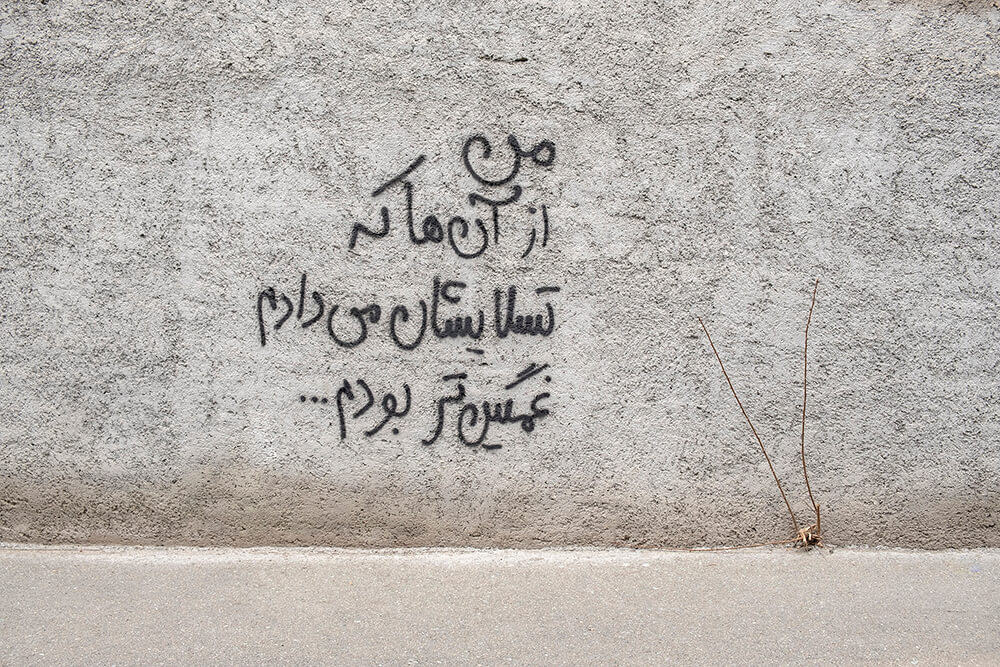 من
از آن ها که
تسلایشان می دادم
غمگین تر بودم...